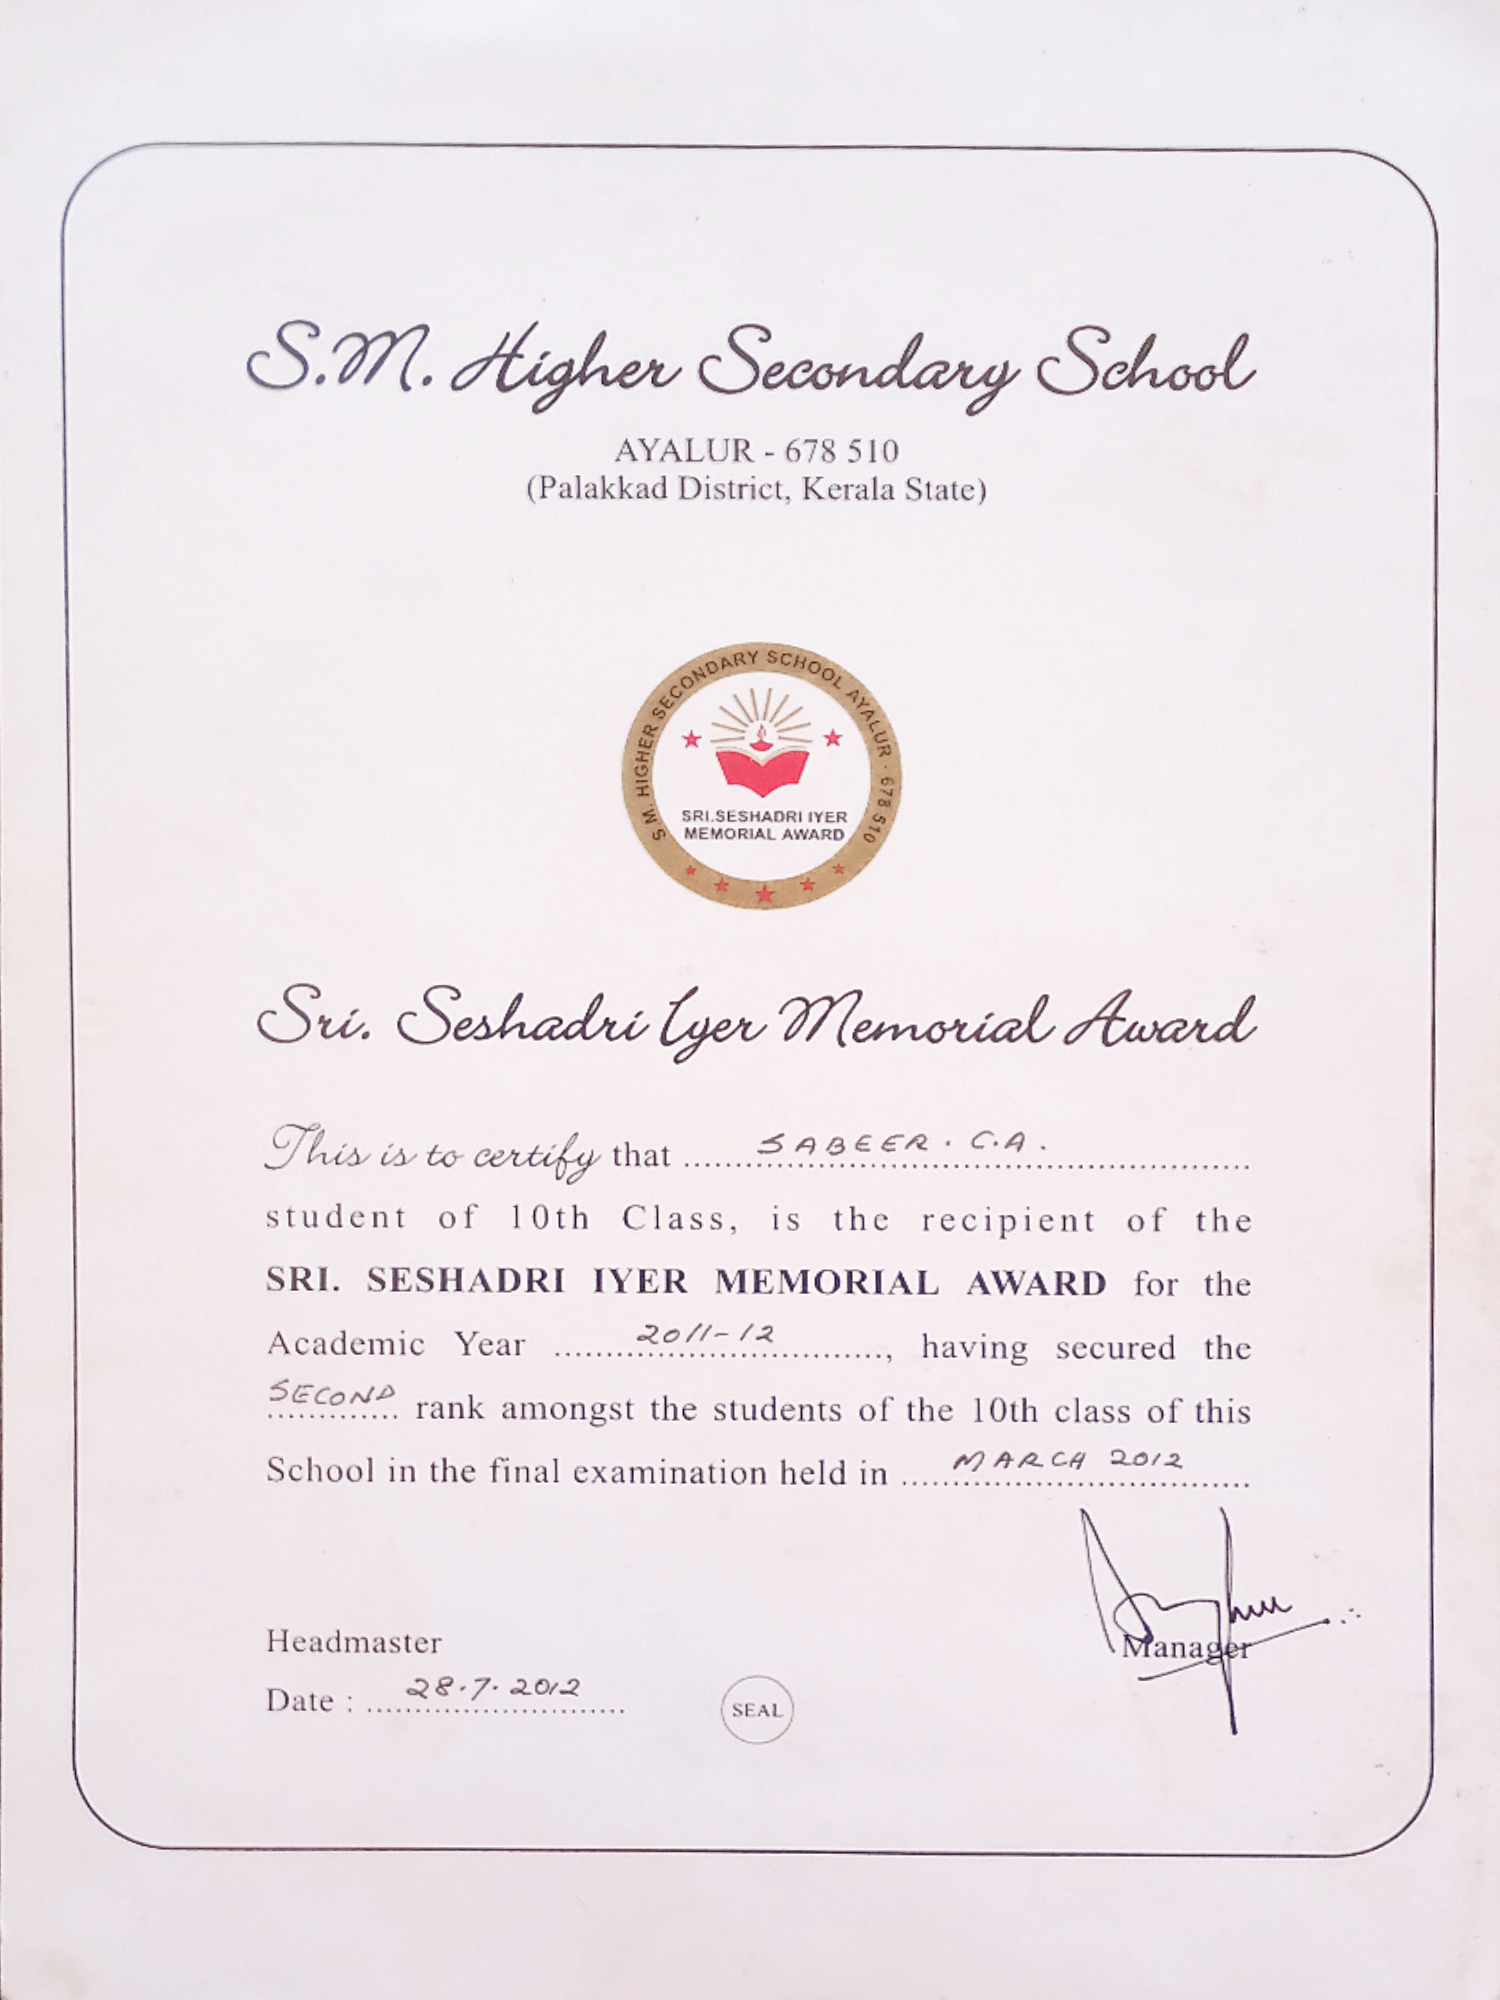 S.M. Higher Secondary School
AYALUR - 678 510
(Palakkad District, Kerala State)
S.M. HIGHER SECONDARY SCHOOL AYALUR - 678 510
SRI.SESHADRI IYER
MEMORIAL AWARD
Sri. Seshadri Iyer Memorial Award
This is to certify that SABEER. C.A.
student of 10th Class, is the recipient of the
SRI. SESHADRI IYER MEMORIAL AWARD for the
Academic Year 2011-12, having secured the
SECOND rank amongst the students of the 10th class of this
School in the final examination held in MARCH 2012
Headmaster
Manager
Date : 28.7.2012
SEAL